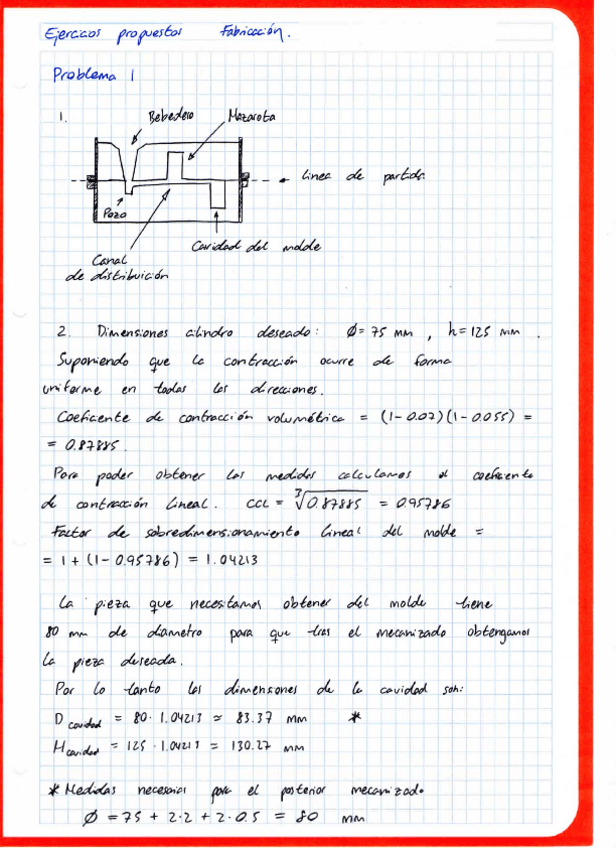 Ejercicos propuestos Fabricación.
Problema 1
1.
Bebedero
Mazarota
Linea de partida
Pozo
Canal
de distribuición
Cavidad del molde
2. Dimensiones cilindro deseado: Ø = 75 mm , h = 125 mm .
Suponiendo que la contracción ocurre de forma
uniforme en todas las direcciones.
Coeficiente de contracción volumétrica = (1-0.07)(1-0.055) =
= 0.87885.
Para poder obtener las medidas calculamos el coeficiente
de contracción lineal. CCL = ∛0.87885 = 0.95786
Factor de sobredimensionamiento lineal del molde =
= 1 + (1-0.95786) = 1.04213
La pieza que necesitamos obtener del molde tiene
80 mm de diametro para que tras el mecanizado obtengamos
la pieza deseada.
Por lo tanto las dimensiones de la cavidad son:
D cavidad = 80 · 1.04213 ≈ 83.37 mm *
H cavidad = 125 · 1.04213 = 130.27 mm
* Medidas necesarias para el posterior mecanizado
Ø = 75 + 2·2 + 2·0.5 = 80 mm